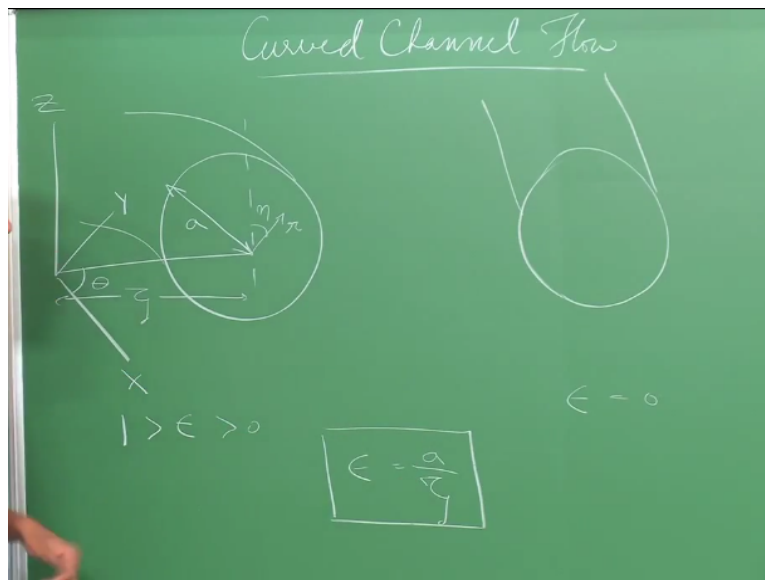 Curved Channel Flow
Z
Y
a
η
r
θ
ζ
X
1 > ε > 0
ε = a/ζ
ε = 0